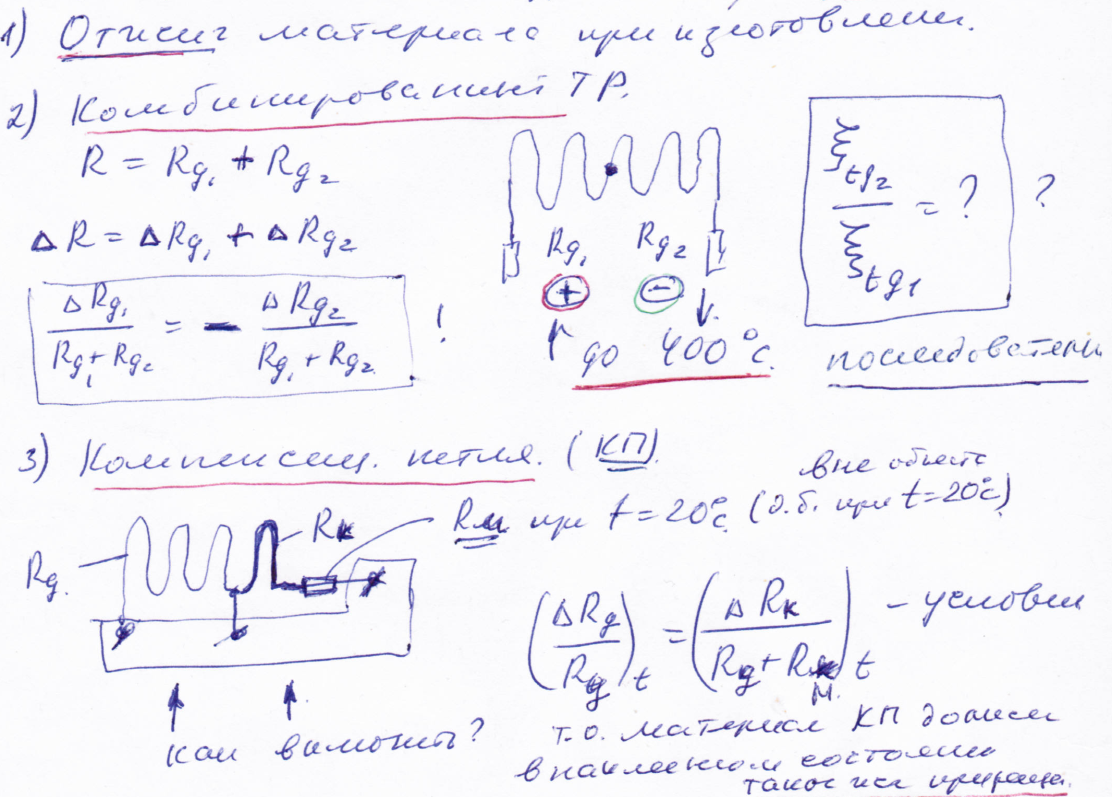 1) Отжиг материала при изготовлении.
2) Комбинированный ТР.
R = Rg₁ + Rg₂
ΔR = ΔRg₁ + ΔRg₂
ΔRg₁ / (Rg₁ + Rg₂) = − ΔRg₂ / (Rg₁ + Rg₂) !
Rg₁ Rg₂
+ −
до 400°C.
ξtg₂ / ξtg₁ = ? ?
последовательн
3) Компенсац. петля. (КП).
Rg. Rк
Rм при t=20°C (д.б. при t=20°C)
вне объекта
(ΔRg / Rg)t = (ΔRк / (Rg + Rм))t – условие
как включить?
т.о. материал КП должен
в наклеенном состоянии
такое же приращ.